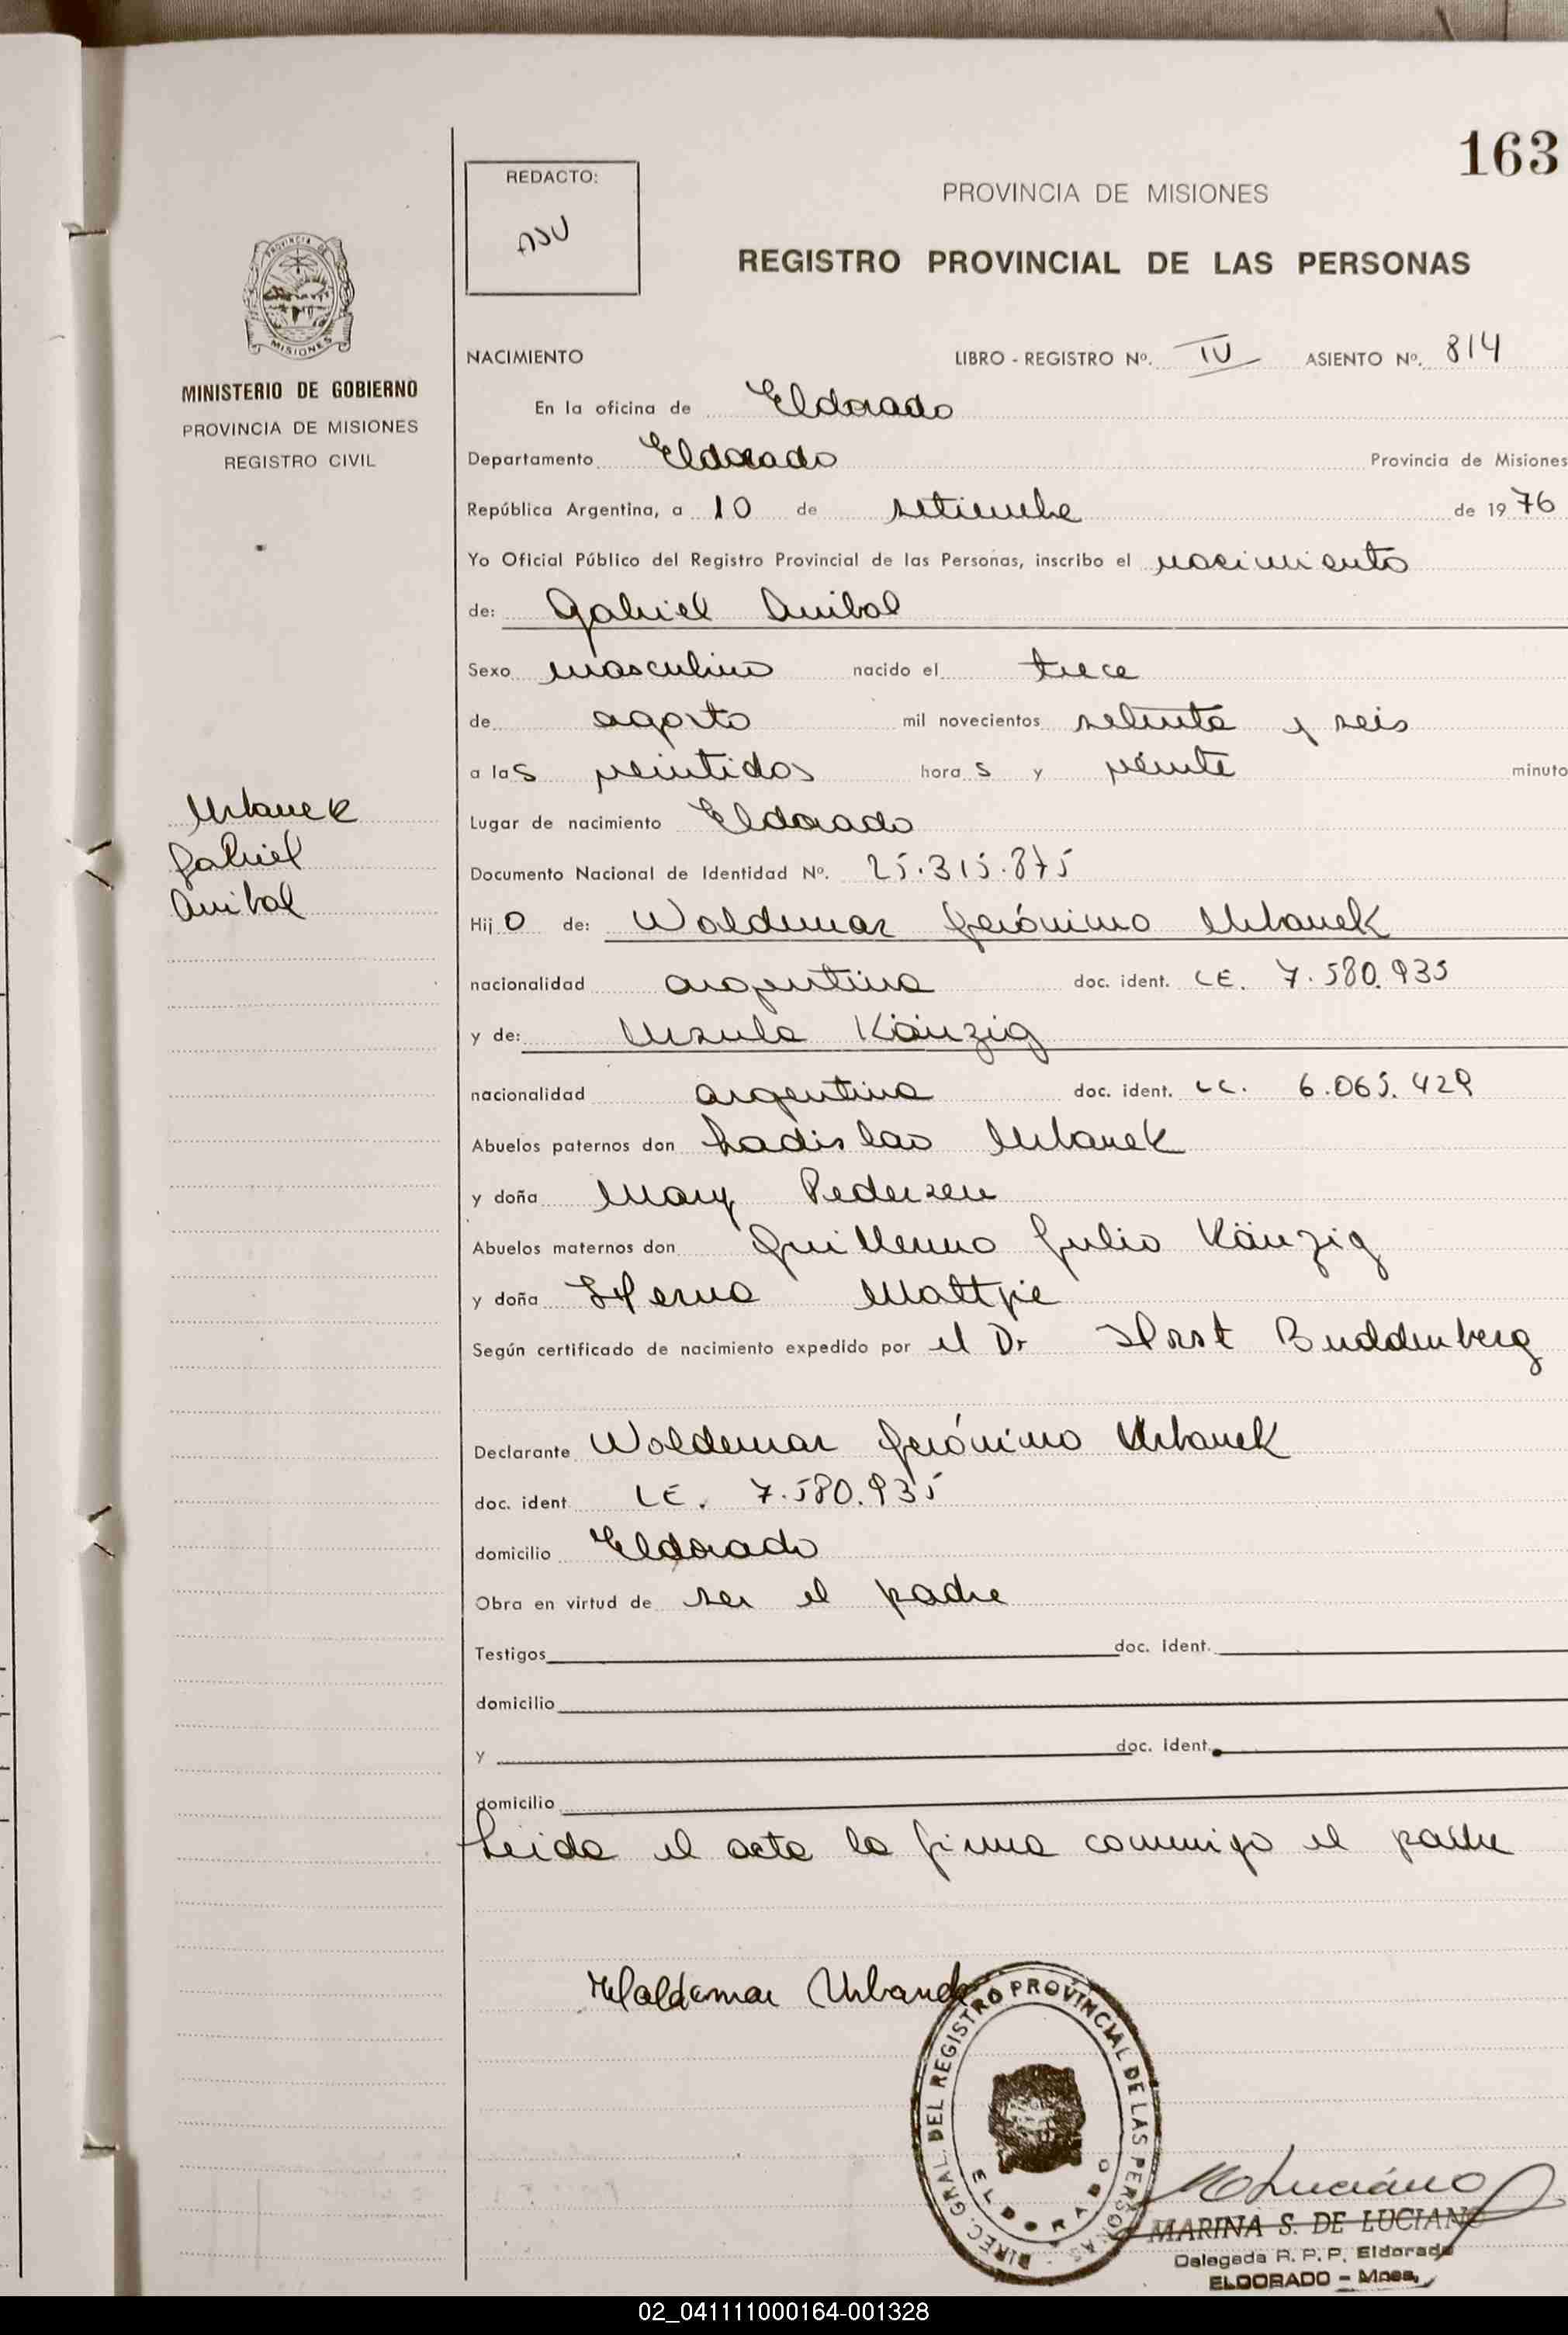 163
REDACTO:
PROVINCIA DE MISIONES
REGISTRO PROVINCIAL DE LAS PERSONAS
PROVINCIA DE
MISIONES
MINISTERIO DE GOBIERNO
PROVINCIA DE MISIONES
REGISTRO CIVIL
NACIMIENTO LIBRO - REGISTRO Nº. IV ASIENTO Nº. 814
En la oficina de Eldorado
Departamento Eldorado Provincia de Misiones
República Argentina, a 10 de setiembre de 1976
Yo Oficial Público del Registro Provincial de las Personas, inscribo el nacimiento
de: Gabriel Anibal
Sexo masculino nacido el trece
de agosto mil novecientos setenta y seis
a las veintidos horas y veinte minuto
Urbanek
Gabriel
Anibal
Lugar de nacimiento Eldorado
Documento Nacional de Identidad Nº. 25.315.875
Hijo de: Woldemar Gerónimo Urbanek
nacionalidad argentina doc. ident. LE. 7.580.935
y de: Ursula Känzig
nacionalidad argentina doc. ident. LC. 6.065.429
Abuelos paternos don Ladislao Urbanek
y doña Mary Pedersen
Abuelos maternos don Guillermo Julio Känzig
y doña Herma Mattjie
Según certificado de nacimiento expedido por el Dr Horst Buddenberg
Declarante Woldemar Gerónimo Urbanek
doc. ident. LE. 7.580.935
domicilio Eldorado
Obra en virtud de ser el padre
Testigos doc. ident.
domicilio
y doc. ident.
domicilio
Leida el acta la firma conmigo el padre
Waldemar Urbanek
DIREC. GRAL. DEL REGISTRO PROVINCIAL DE LAS PERSONAS
ELDORADO
MLuciano
MARINA S. DE LUCIANO
Delegada R. P. P. Eldorado
ELDORADO - Mnes.
02_041111000164-001328